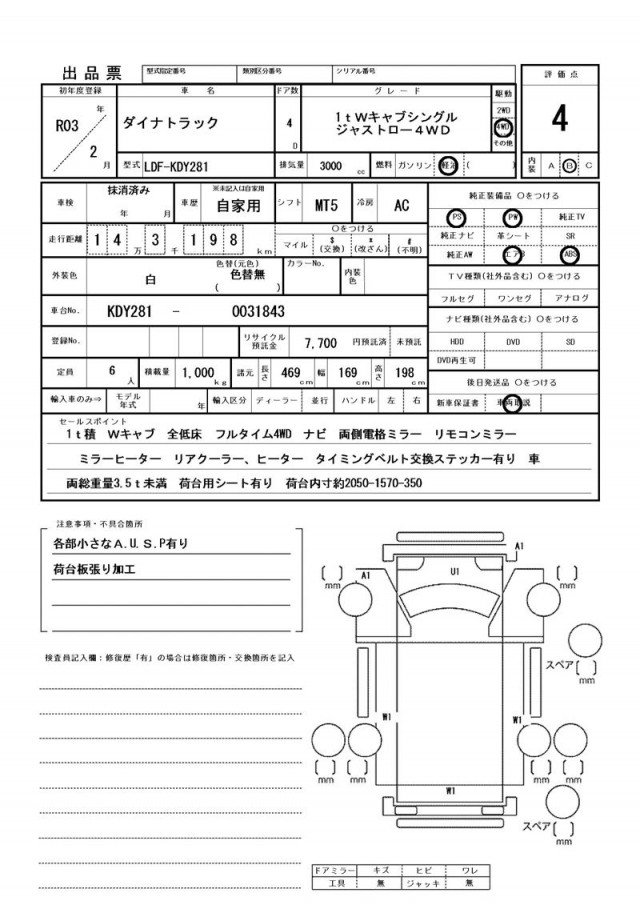 出品票
型式指定番号 類別区分番号 シリアル番号
評価点
初年度登録 車名 ドア数 グレード 駆動
R03年 2月
ダイナトラック
4 D
1tWキャブシングル
ジャストロー4WD
2WD
4WD
その他
4
型式 LDF-KDY281 排気量 3000 cc 燃料 ガソリン 軽油 ( )
内装 A B C
車検 抹消済み 年 月
車歴 ※未記入は自家用 自家用
シフト MT5 冷房 AC
純正装備品 ○をつける
PS PW 純正TV
純正ナビ 革シート SR
純正AW エアB ABS
走行距離 1 4 万 3 千 1 9 8 km
○をつける
マイル $(交換) *(改ざん) #(不明)
外装色 白 色替(元色) 色替無 ( )
カラーNo. 内装色
TV種類(社外品含む) ○をつける
フルセグ ワンセグ アナログ
車台No. KDY281 - 0031843
ナビ種類(社外品含む) ○をつける
HDD DVD SD
DVD再生可
登録No. リサイクル預託金 7,700 円預託済 未預託
定員 6 人 積載量 1,000 kg 諸元 長さ 469 cm 幅 169 cm 高さ 198 cm
後日発送品 ○をつける
新車保証書 車両取説
輸入車のみ⇒ モデル年式 年 輸入区分 ディーラー 並行 ハンドル 左 右
セールスポイント
1t積 Wキャブ 全低床 フルタイム4WD ナビ 両側電格ミラー リモコンミラー
ミラーヒーター リアクーラー、ヒーター タイミングベルト交換ステッカー有り 車
両総重量3.5t未満 荷台用シート有り 荷台内寸約2050-1570-350
注意事項・不具合箇所
各部小さなA.U.S.P有り
荷台板張り加工
検査員記入欄：修復歴「有」の場合は修復箇所・交換箇所を記入
A1
A1 U1
mm mm
スペア mm
W1 W1
mm mm mm mm
W1
スペア mm
ドアミラー キズ ヒビ ワレ
工具 無 ジャッキ 無